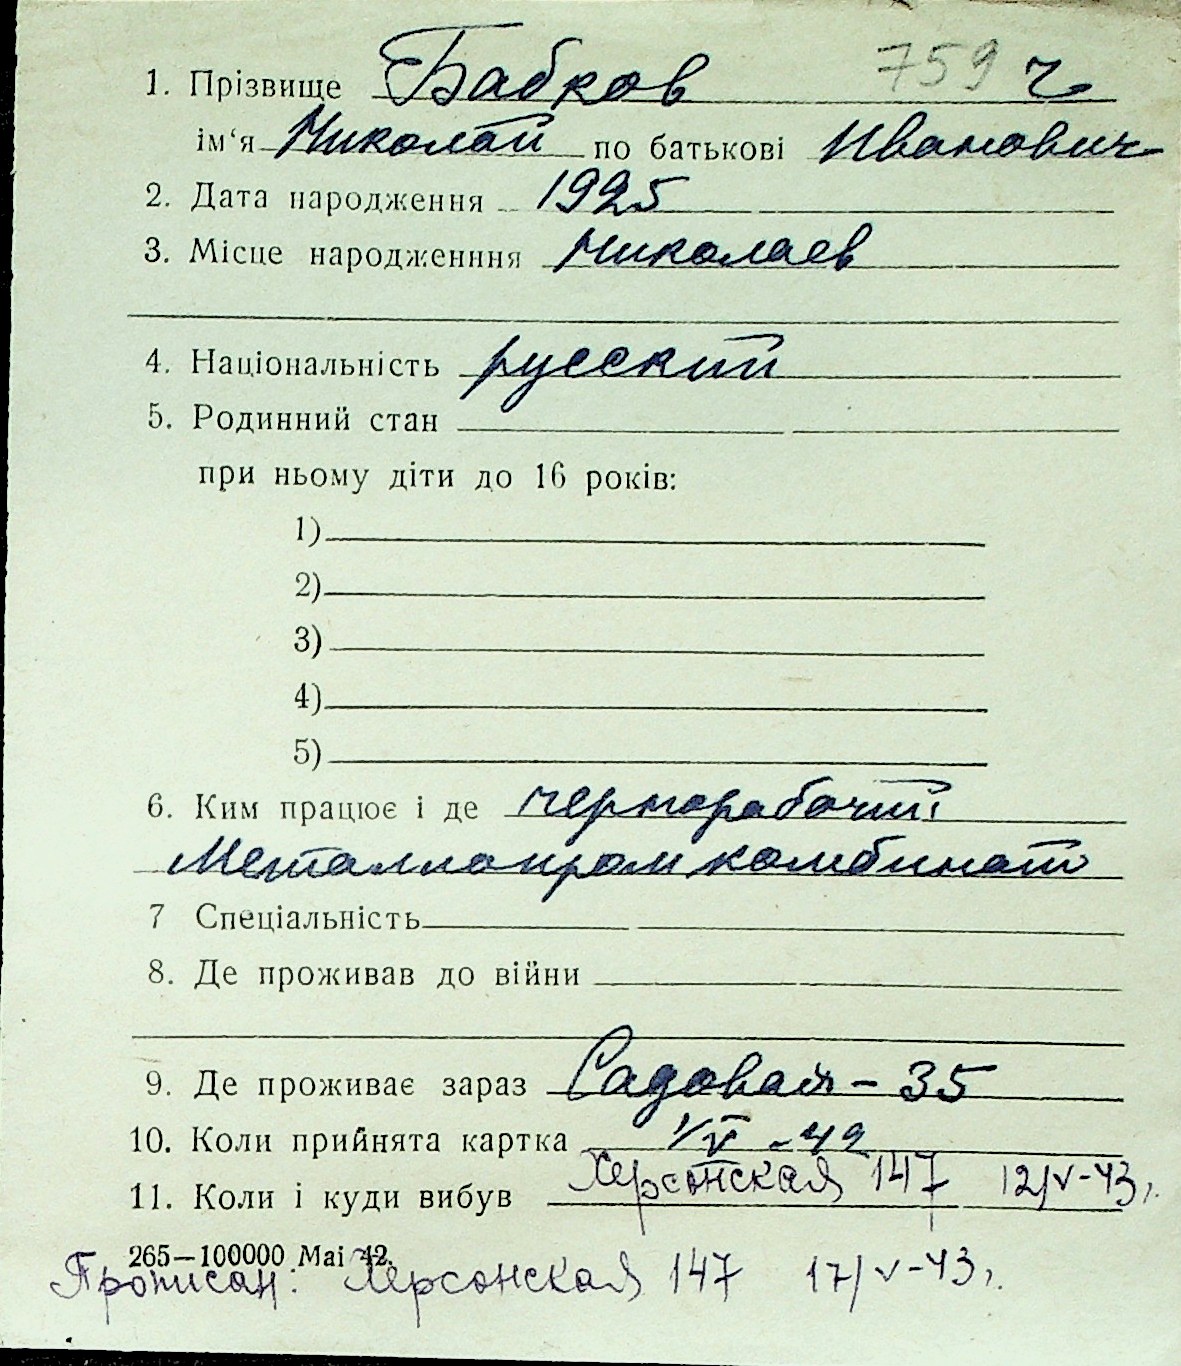 1. Прізвище Бабков 759 ч
ім‘я Николай по батькові Иванович
2. Дата народження 1925
3. Місце народженння Николаев
4. Національність русский
5. Родинний стан
при ньому діти до 16 років:
1)
2)
3)
4)
5)
6. Ким працює і де чернорабочий
Металлопромкомбинат
7 Спеціальність
8. Де проживав до війни
9. Де проживає зараз Садовая - 35
10. Коли прийнята картка 1/V - 42
11. Коли і куди вибув Херсонская 147 12/V-43 г.
265—100000 Маі 42.
Прописан: Херсонская 147 17/V-43 г.